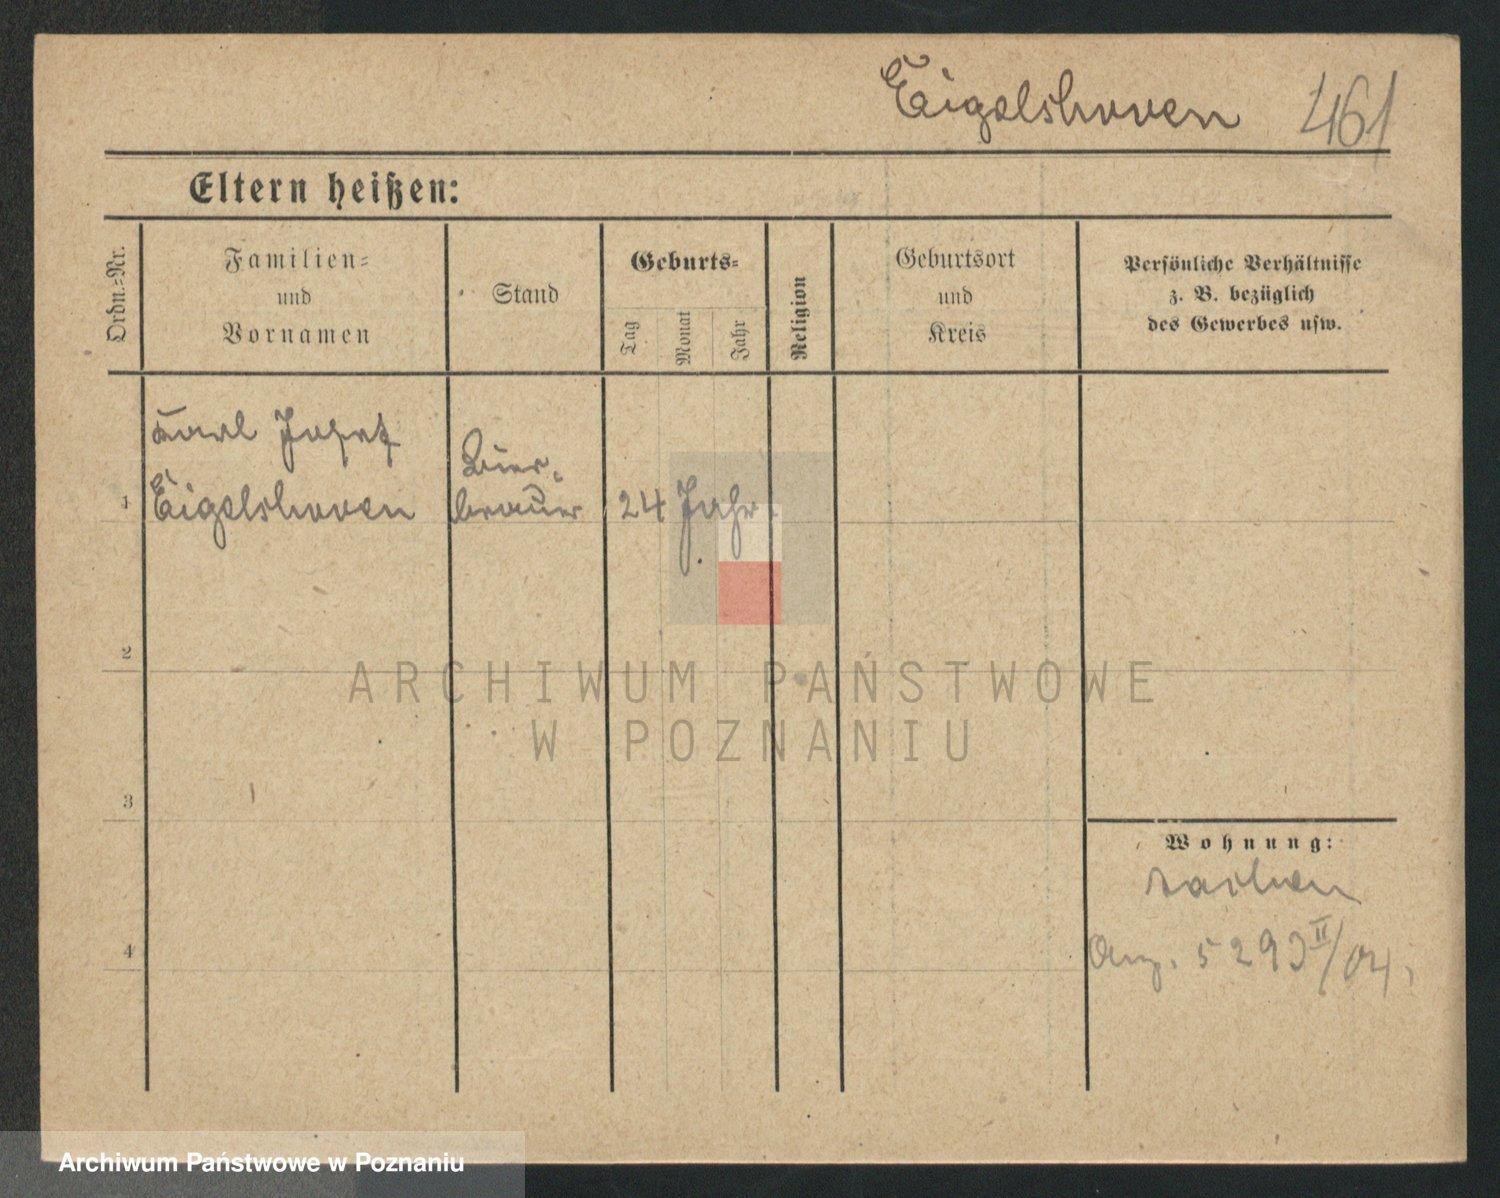 Eigelshoven 461
Eltern heißen:
Ordn.-Nr.
Familien-
und
Vornamen
Stand
Geburts-
Tag
Monat
Jahr
Religion
Geburtsort
und
Kreis
Persönliche Verhältnisse
z. B. bezüglich
des Gewerbes usw.
1
Karl Josef
Eigelshoven
Bier-
brauer
24 Jahr.
2
3
4
Wohnung:
Aachen
Ang. 5293 II/04.
ARCHIWUM PAŃSTWOWE
W POZNANIU
Archiwum Państwowe w Poznaniu